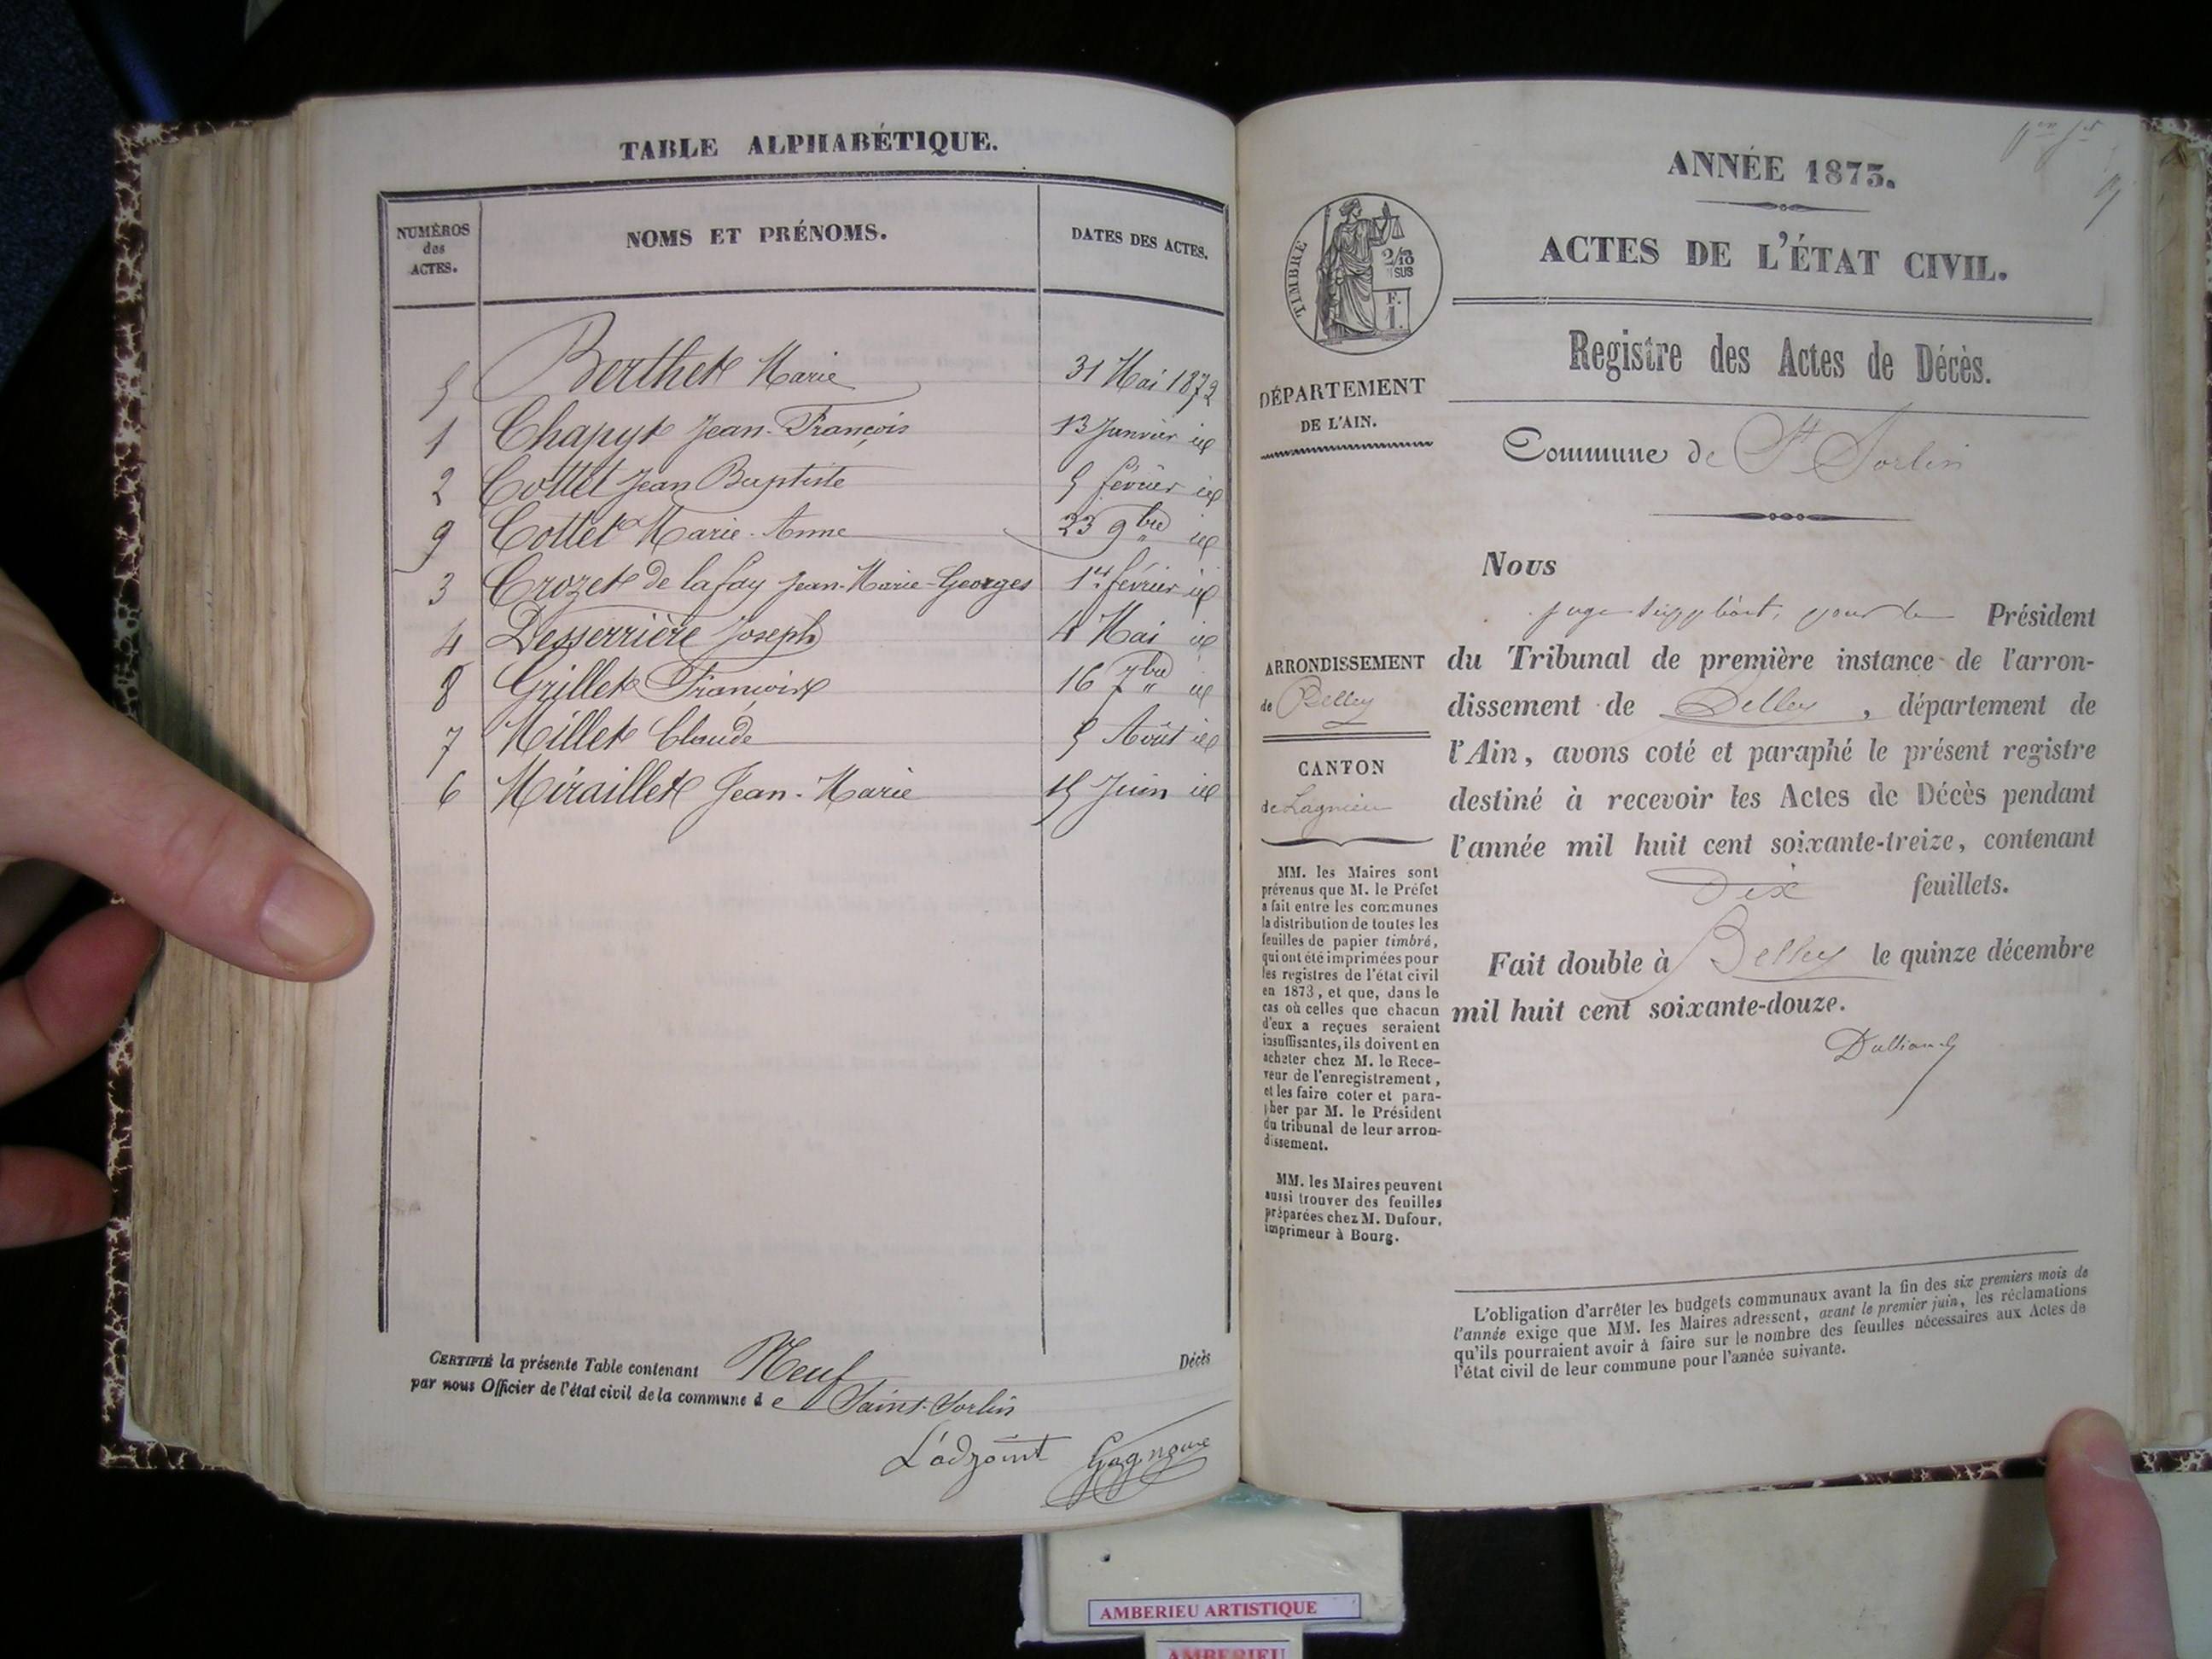 TABLE ALPHABÉTIQUE.
NUMÉROS des ACTES. NOMS ET PRÉNOMS. DATES DES ACTES.
5 Berthet Marie 31 Mai 1872
1 Chapyt Jean-François 13 Janvier id
2 Cottet Jean Baptiste 5 février id
9 Cottet Marie-Anne 23 9bre id
3 Crozet de lafay Jean-Marie-Georges 1er février id
4 Desserrière Joseph 4 Mai id
8 Grillet François 16 7bre id
7 Millet Claude 5 Août id
6 Miraillet Jean-Marie 15 Juin id
CERTIFIÉ la présente Table contenant Neuf Décès
par nous Officier de l'état civil de la commune d e Saint-Sorlin
L'adjoint Gagneure
ANNÉE 1873.
ACTES DE L'ÉTAT CIVIL.
TIMBRE
2/10
EN SUS
F.
1.
Registre des Actes de Décès.
DÉPARTEMENT
DE L'AIN.
Commune de St Sorlin
Nous
juge suppléant, pour le Président
du Tribunal de première instance de l'arron-
dissement de Belley, département de
l'Ain, avons coté et paraphé le présent registre
destiné à recevoir les Actes de Décès pendant
l'année mil huit cent soixante-treize, contenant
Dix feuillets.
Fait double à Belley le quinze décembre
mil huit cent soixante-douze.
ARRONDISSEMENT
de Belley
CANTON
de Lagnieu
MM. les Maires sont
prévenus que M. le Préfet
a fait entre les communes
la distribution de toutes les
feuilles de papier timbré,
qui ont été imprimées pour
les registres de l'état civil
en 1873, et que, dans le
cas où celles que chacun
d'eux a reçues seraient
insuffisantes, ils doivent en
acheter chez M. le Rece-
veur de l'enregistrement,
et les faire coter et para-
pher par M. le Président
du tribunal de leur arron-
dissement.
MM. les Maires peuvent
aussi trouver des feuilles
préparées chez M. Dufour,
imprimeur à Bourg.
L'obligation d'arrêter les budgets communaux avant la fin des six premiers mois de
l'année exige que MM. les Maires adressent, avant le premier juin, les réclamations
qu'ils pourraient avoir à faire sur le nombre des feuilles nécessaires aux Actes de
l'état civil de leur commune pour l'année suivante.
AMBERIEU ARTISTIQUE
AMBERIEU